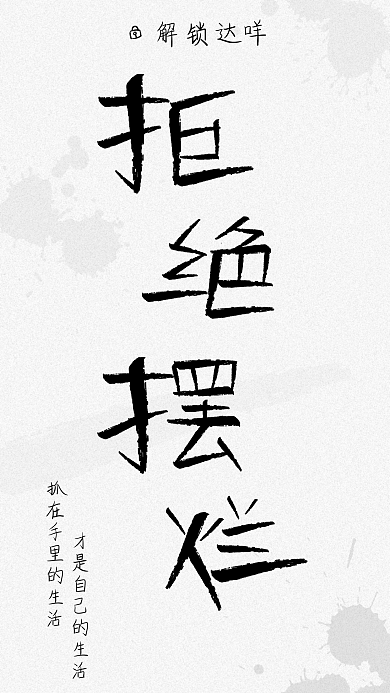 解锁达咩
拒绝摆烂
抓在手里的生活
才是自己的生活